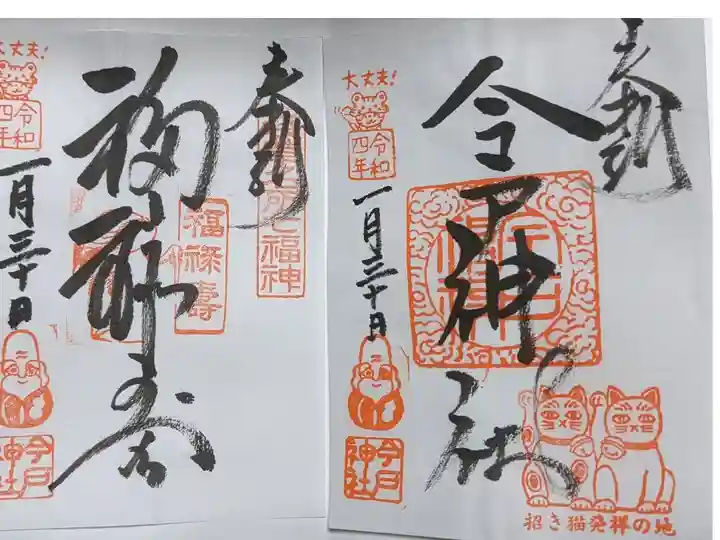 奉拝
今戸神社
大丈夫!
令和
四年
一月三十日
今戸
神社
招き猫発祥の地
奉拝
福禄寿
七福神
福禄寿
大丈夫!
令和
四年
一月三十日
今戸
神社